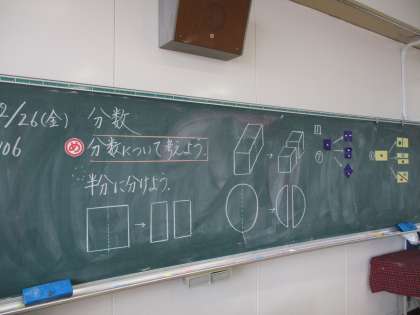 2/26(金) 分数
106
め 分数について考えよう.
半分に分けよう.